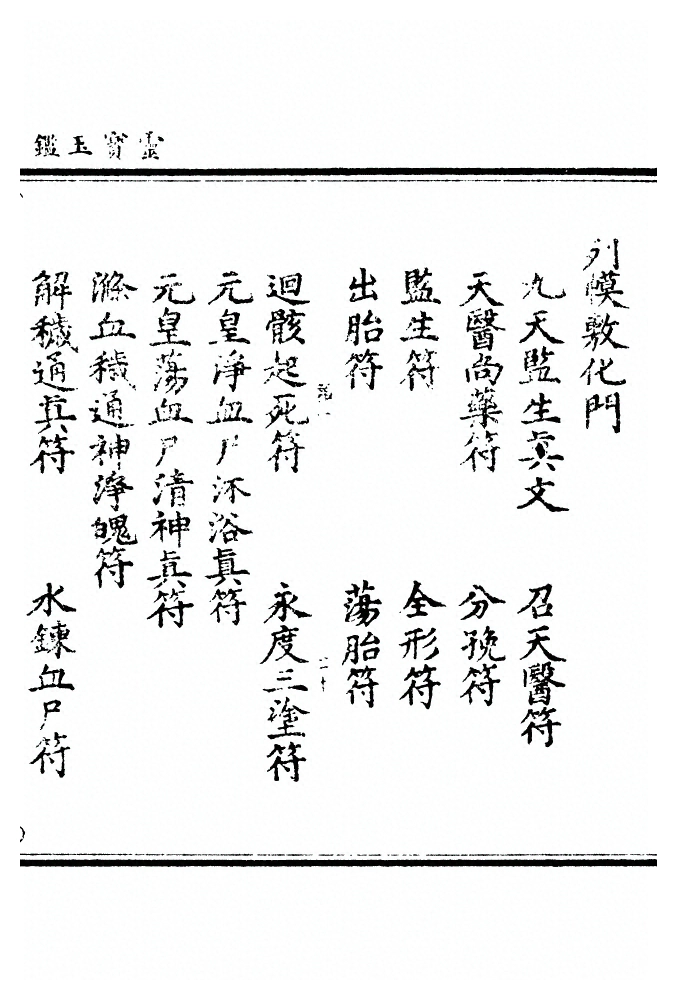 靈寳玉鑑
列幙敷化門
九天監生眞文　召天醫符
天醫尚藥符　分㝃符
監生符　全形符
出胎符　蕩胎符
迴骸起死符　永度三塗符
元皇淨血尸沐浴眞符
元皇蕩血尸清神眞符
滌血穢通神淨魄符
解穢通眞符　水鍊血尸符